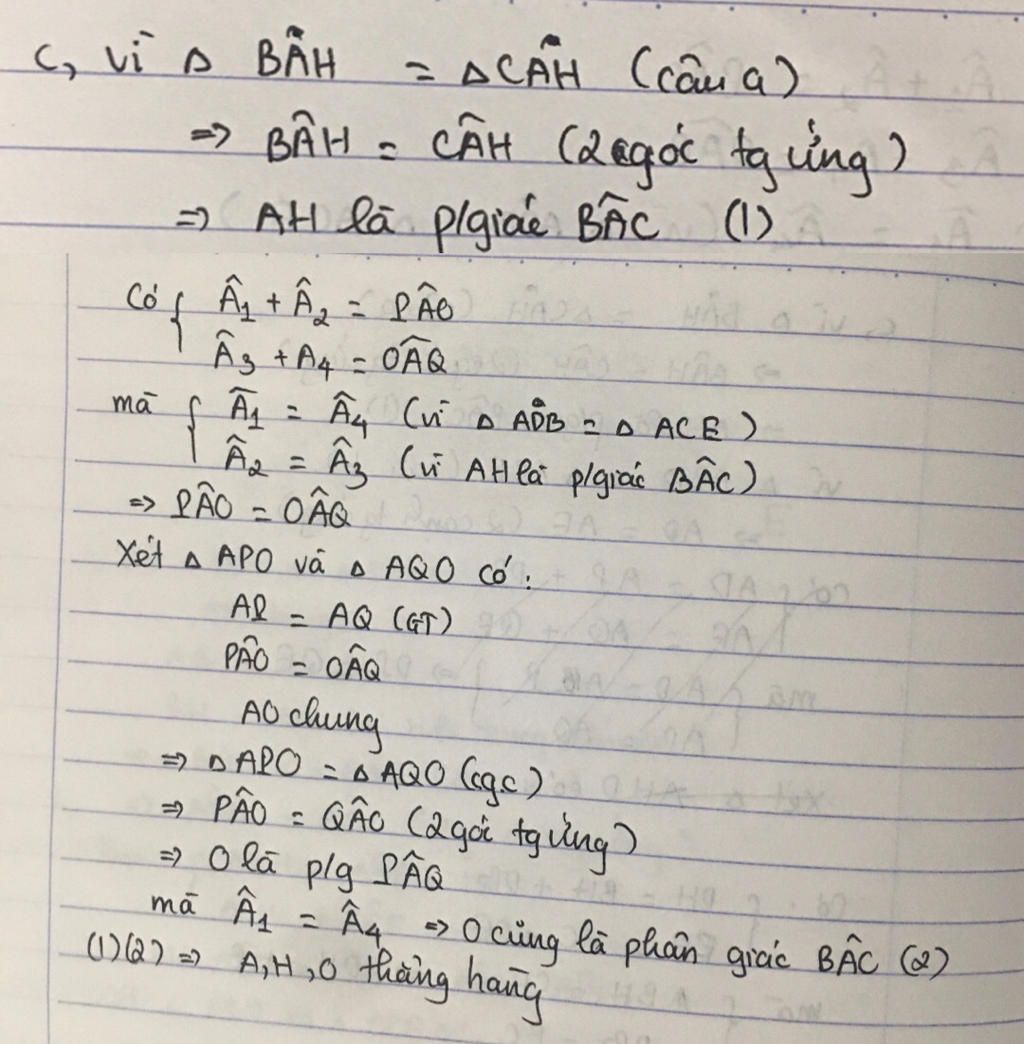 c, Vì Δ BÂH = ΔCÂH (câu a)
=> BÂH = CÂH (2 góc tg ứng)
=> AH là p/giác BÂC (1)
Có { Â1 + Â2 = PÂO
Â3 + A4 = OÂQ
mà { Â1 = Â4 (vì Δ ADB = Δ ACE)
Â2 = Â3 (vì AH là p/giác BÂC)
=> PÂO = OÂQ
Xét Δ APO và Δ AQO có:
AP = AQ (GT)
PÂO = OÂQ
AO chung
=> Δ APO = Δ AQO (cgc)
=> PÂO = QÂO (2 góc tg ứng)
=> O là p/g PÂQ
mà Â1 = Â4 => O cũng là phân giác BÂC (2)
(1)(2) => A, H, O thẳng hàng